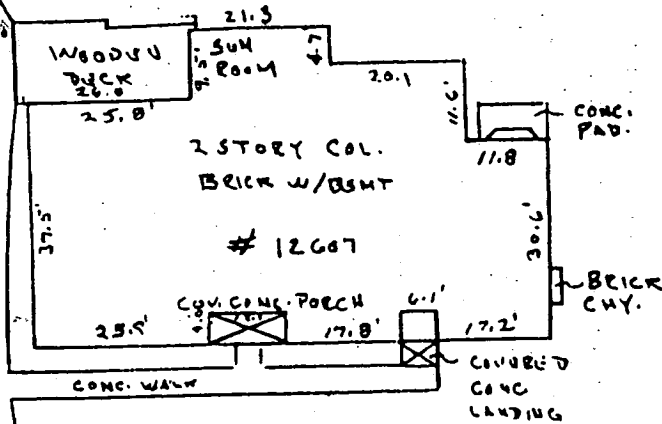 21.3
WOODEN
DECK
SUN
ROOM
4.7
20.1
25.8'
11.6'
CONC.
PAD.
11.8
2 STORY COL.
BRICK W/BSMT
# 12607
37.5'
30.6'
BRICK
CHY.
COV. CONC. PORCH
6.1'
17.8'
17.2'
CONC. WALK
COVERED
CONC
LANDING